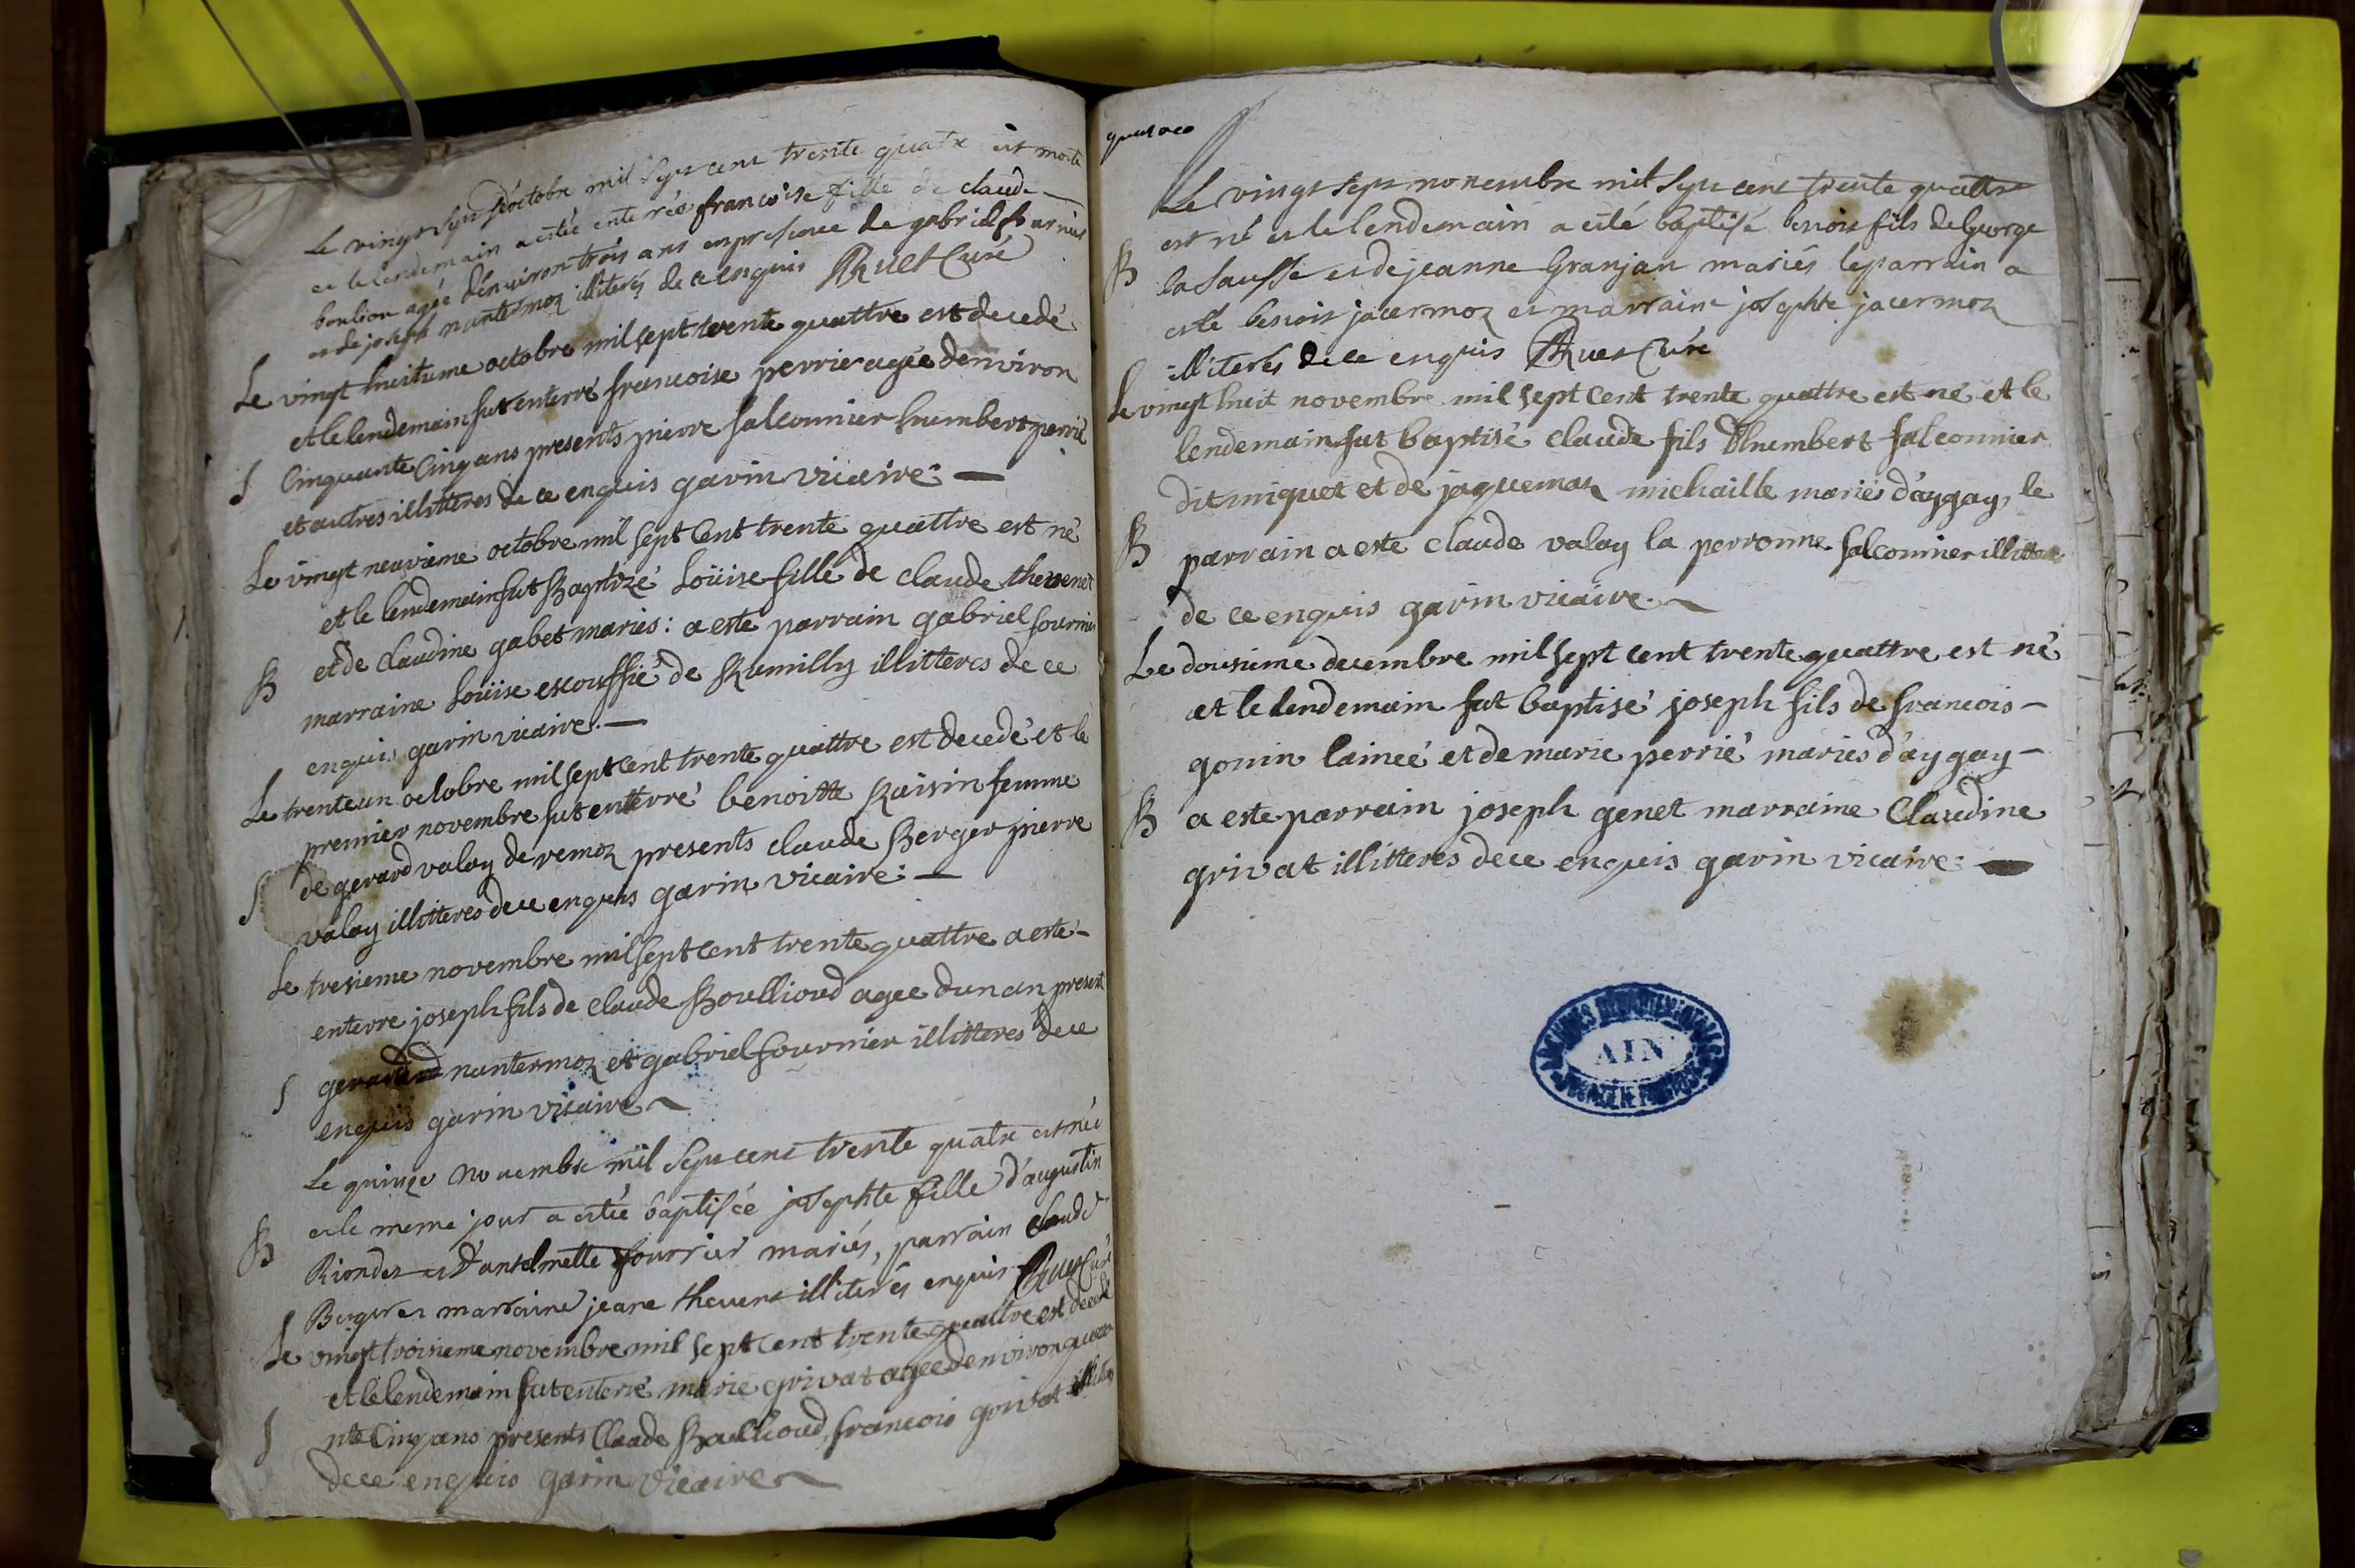 Le vingt sept d'octobre mil sept cent trente quatre est morte
et le lendemain a estée enterrée francoise fille de claude
boulion agée d'environ trois ans en presence de gabriel fournier
et de joseph nantermoz illiterés de ce enquis Ruet Curé
Le vingt huitieme octobre mil sept trente quattre est decedé
et le lendemain fut enterré francoise perrier agée denviron
S Cinquante Cinq ans presents pierre falconnier humbert perrié
et autres illitteres de ce enquis garin vicaire.
Le vingt neuvieme octobre mil sept Cent trente quattre est né
et le lendemain fut Baptizé Loüise fille de claude thevenet
B et de claudine gabet mariés : a esté parrain gabriel fournier
marraine Loüise escoffié de Rumilly illitteres de ce
enquis garin vicaire.
Le trente un octobre mil sept cent trente quattre est decedé et le
premier novembre fut enterré benoitte Raisin femme
de gerard valay de remoz presents claude Berger pierre
S valay illitteres de ce enquis garin vicaire :
Le tresieme novembre mil sept Cent trente quattre a esté
enterre joseph fils de claude Boullioud agee dun an present
S nantermoz et gabriel fournier illitteres de ce
enquis garin vicaire
Le quinze novembre mil sept cent trente quatre est née
B et le meme jour a estée baptisée josephte fille d'augustin
Riondet et D'antelmette fourrier mariés, parrain claude
Berger et marraine jeane thevenet illiterés enquis Ruet Curé
Le vingt troisieme novembre mil sept cent trente quattre est decedé
et le lendemain fut enterré marie grivat agee denviron quara
S nte Cinq ans presents Claude Boullioud, francois grivat illitteres
de ce enquis garin vicaire
Le vingt sept novembre mil sept cent trente quattre
est né et le lendemain a esté baptisé benoit fils de George
B la Sausse et de jeanne Granjan mariés le parrain a
esté benoit jacermoz et marraine josephte jacermoz
illiterés de ce enquis Ruet Curé
Le vingt huit novembre mil sept Cent trente quattre est né et le
lendemain fut baptisé claude fils d'humbert falconnier
dit miquet et de jaquemaz michaille mariés d'aygay, le
B parrain a este claude valay la perronne falconnier illittere
de ce enquis garin vicaire.
Le dousieme decembre mil sept cent trente quattre est né
et le lendemain fut baptisé joseph fils de francois
gonin laineé et de marie perrié mariés d'aygay
B a este parrain joseph genet marraine Claudine
grivat illitteres de ce enquis garin vicaire :
ARCHIVES DÉPARTEMENTALES
AIN